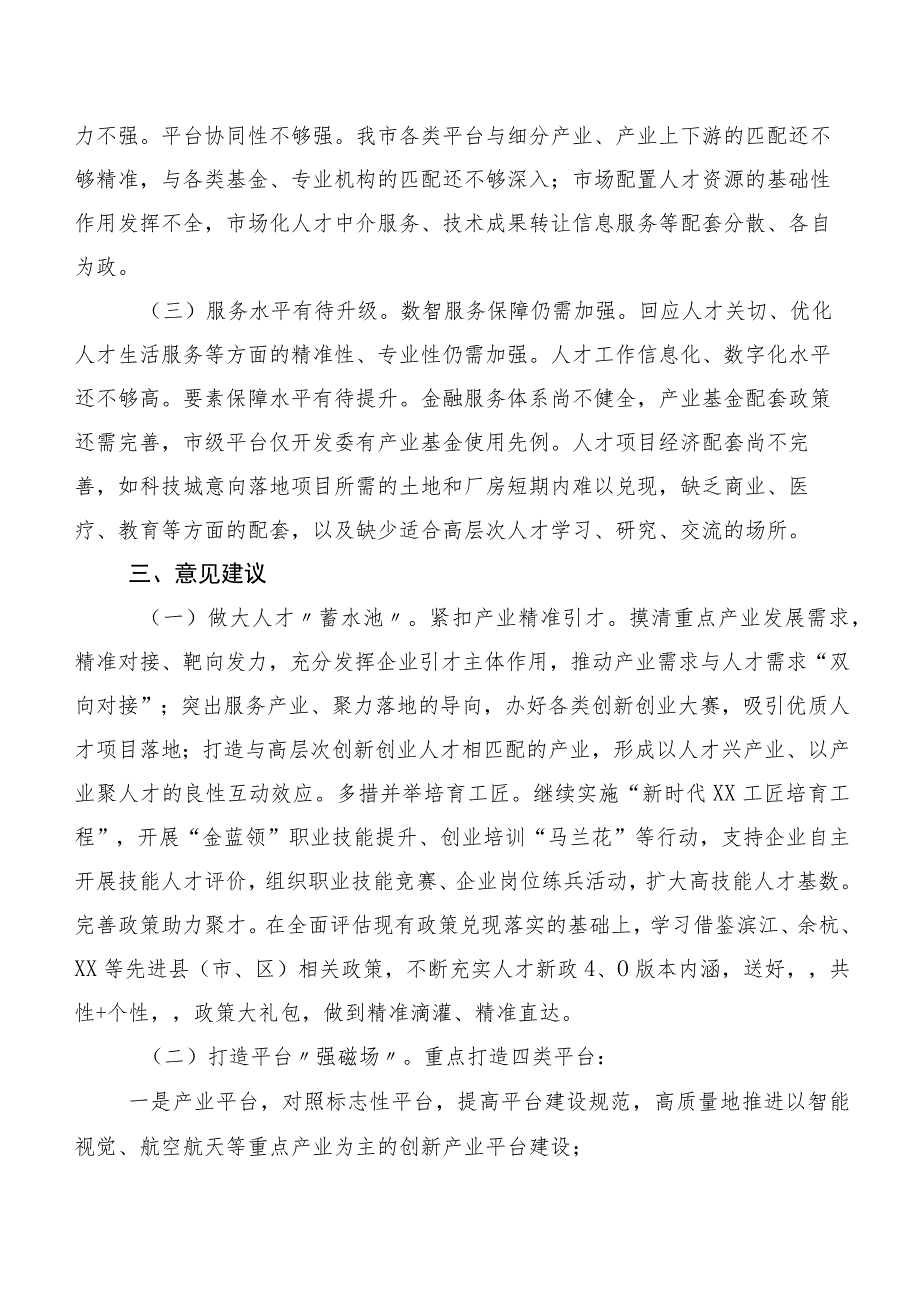 力不强。平台协同性不够强。我市各类平台与细分产业、产业上下游的匹配还不
够精准，与各类基金、专业机构的匹配还不够深入；市场配置人才资源的基础性
作用发挥不全，市场化人才中介服务、技术成果转让信息服务等配套分散、各自
为政。
（三）服务水平有待升级。数智服务保障仍需加强。回应人才关切、优化
人才生活服务等方面的精准性、专业性仍需加强。人才工作信息化、数字化水平
还不够高。要素保障水平有待提升。金融服务体系尚不健全，产业基金配套政策
还需完善，市级平台仅开发委有产业基金使用先例。人才项目经济配套尚不完
善，如科技城意向落地项目所需的土地和厂房短期内难以兑现，缺乏商业、医
疗、教育等方面的配套，以及缺少适合高层次人才学习、研究、交流的场所。
三、意见建议
（一）做大人才〃蓄水池〃。紧扣产业精准引才。摸清重点产业发展需求，
精准对接、靶向发力，充分发挥企业引才主体作用，推动产业需求与人才需求“双
向对接”；突出服务产业、聚力落地的导向，办好各类创新创业大赛，吸引优质人
才项目落地；打造与高层次创新创业人才相匹配的产业，形成以人才兴产业、以产
业聚人才的良性互动效应。多措并举培育工匠。继续实施“新时代XX工匠培育工
程”，开展“金蓝领”职业技能提升、创业培训“马兰花”等行动，支持企业自主
开展技能人才评价，组织职业技能竞赛、企业岗位练兵活动，扩大高技能人才基数。
完善政策助力聚才。在全面评估现有政策兑现落实的基础上，学习借鉴滨江、余杭、
XX等先进县（市、区）相关政策，不断充实人才新政4、O版本内涵，送好，，共
性+个性，，政策大礼包，做到精准滴灌、精准直达。
（二）打造平台〃强磁场〃。重点打造四类平台：
一是产业平台，对照标志性平台，提高平台建设规范，高质量地推进以智能
视觉、航空航天等重点产业为主的创新产业平台建设；